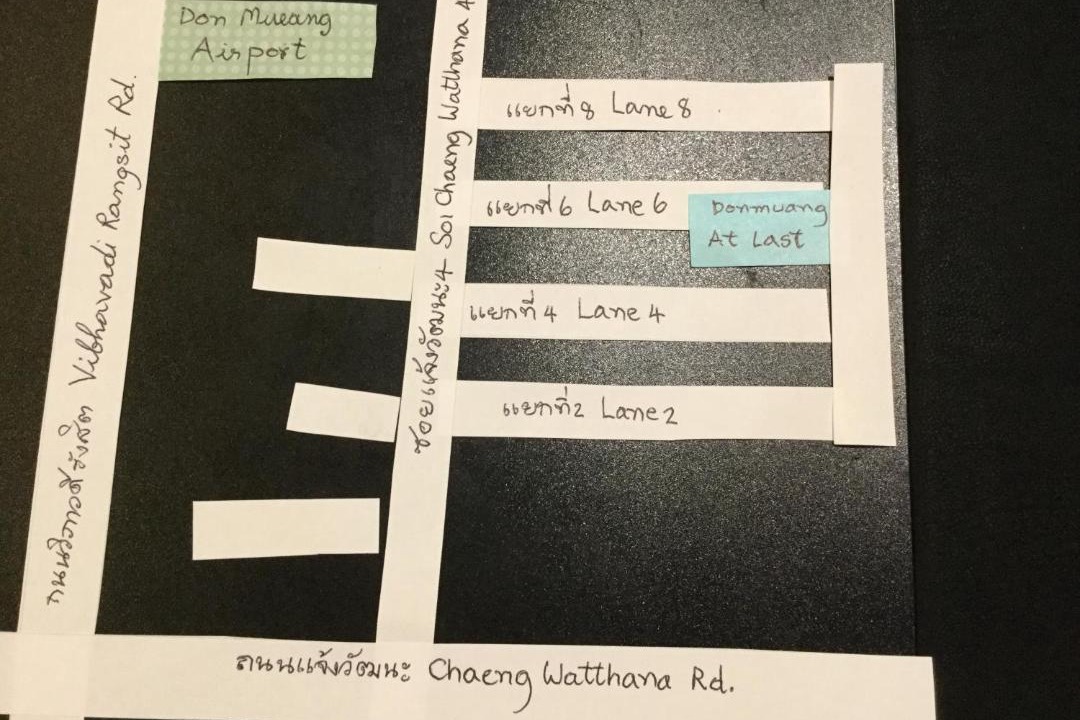 Don Mueang
Airport
ถนนวิภาวดีรังสิต Vibhavadi Rangsit Rd.
ซอยแจ้งวัฒนะ4 Soi Chaeng Watthana 4
แยกที่8 Lane 8
แยกที่6 Lane 6
Donmuang
At Last
แยกที่4 Lane 4
แยกที่2 Lane 2
ถนนแจ้งวัฒนะ Chaeng Watthana Rd.